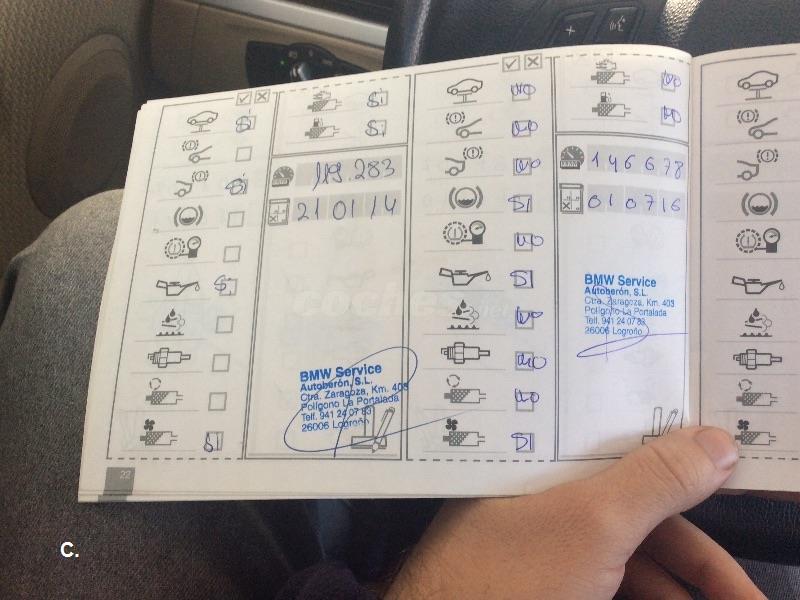 Si
Si
Si
Si
Si
Si
119.283
21 01 14
BMW Service
Autoberón, S.L.
Ctra. Zaragoza, Km. 403
Polígono La Portalada
Telf. 941 24 07 83
26006 Logroño
22
NO
NO
NO
SI
NO
SI
NO
NO
NO
SI
NO
NO
146678
010716
BMW Service
Autoberón, S.L.
Ctra. Zaragoza, Km. 403
Polígono La Portalada
Telf. 941 24 07 83
26006 Logroño
C.